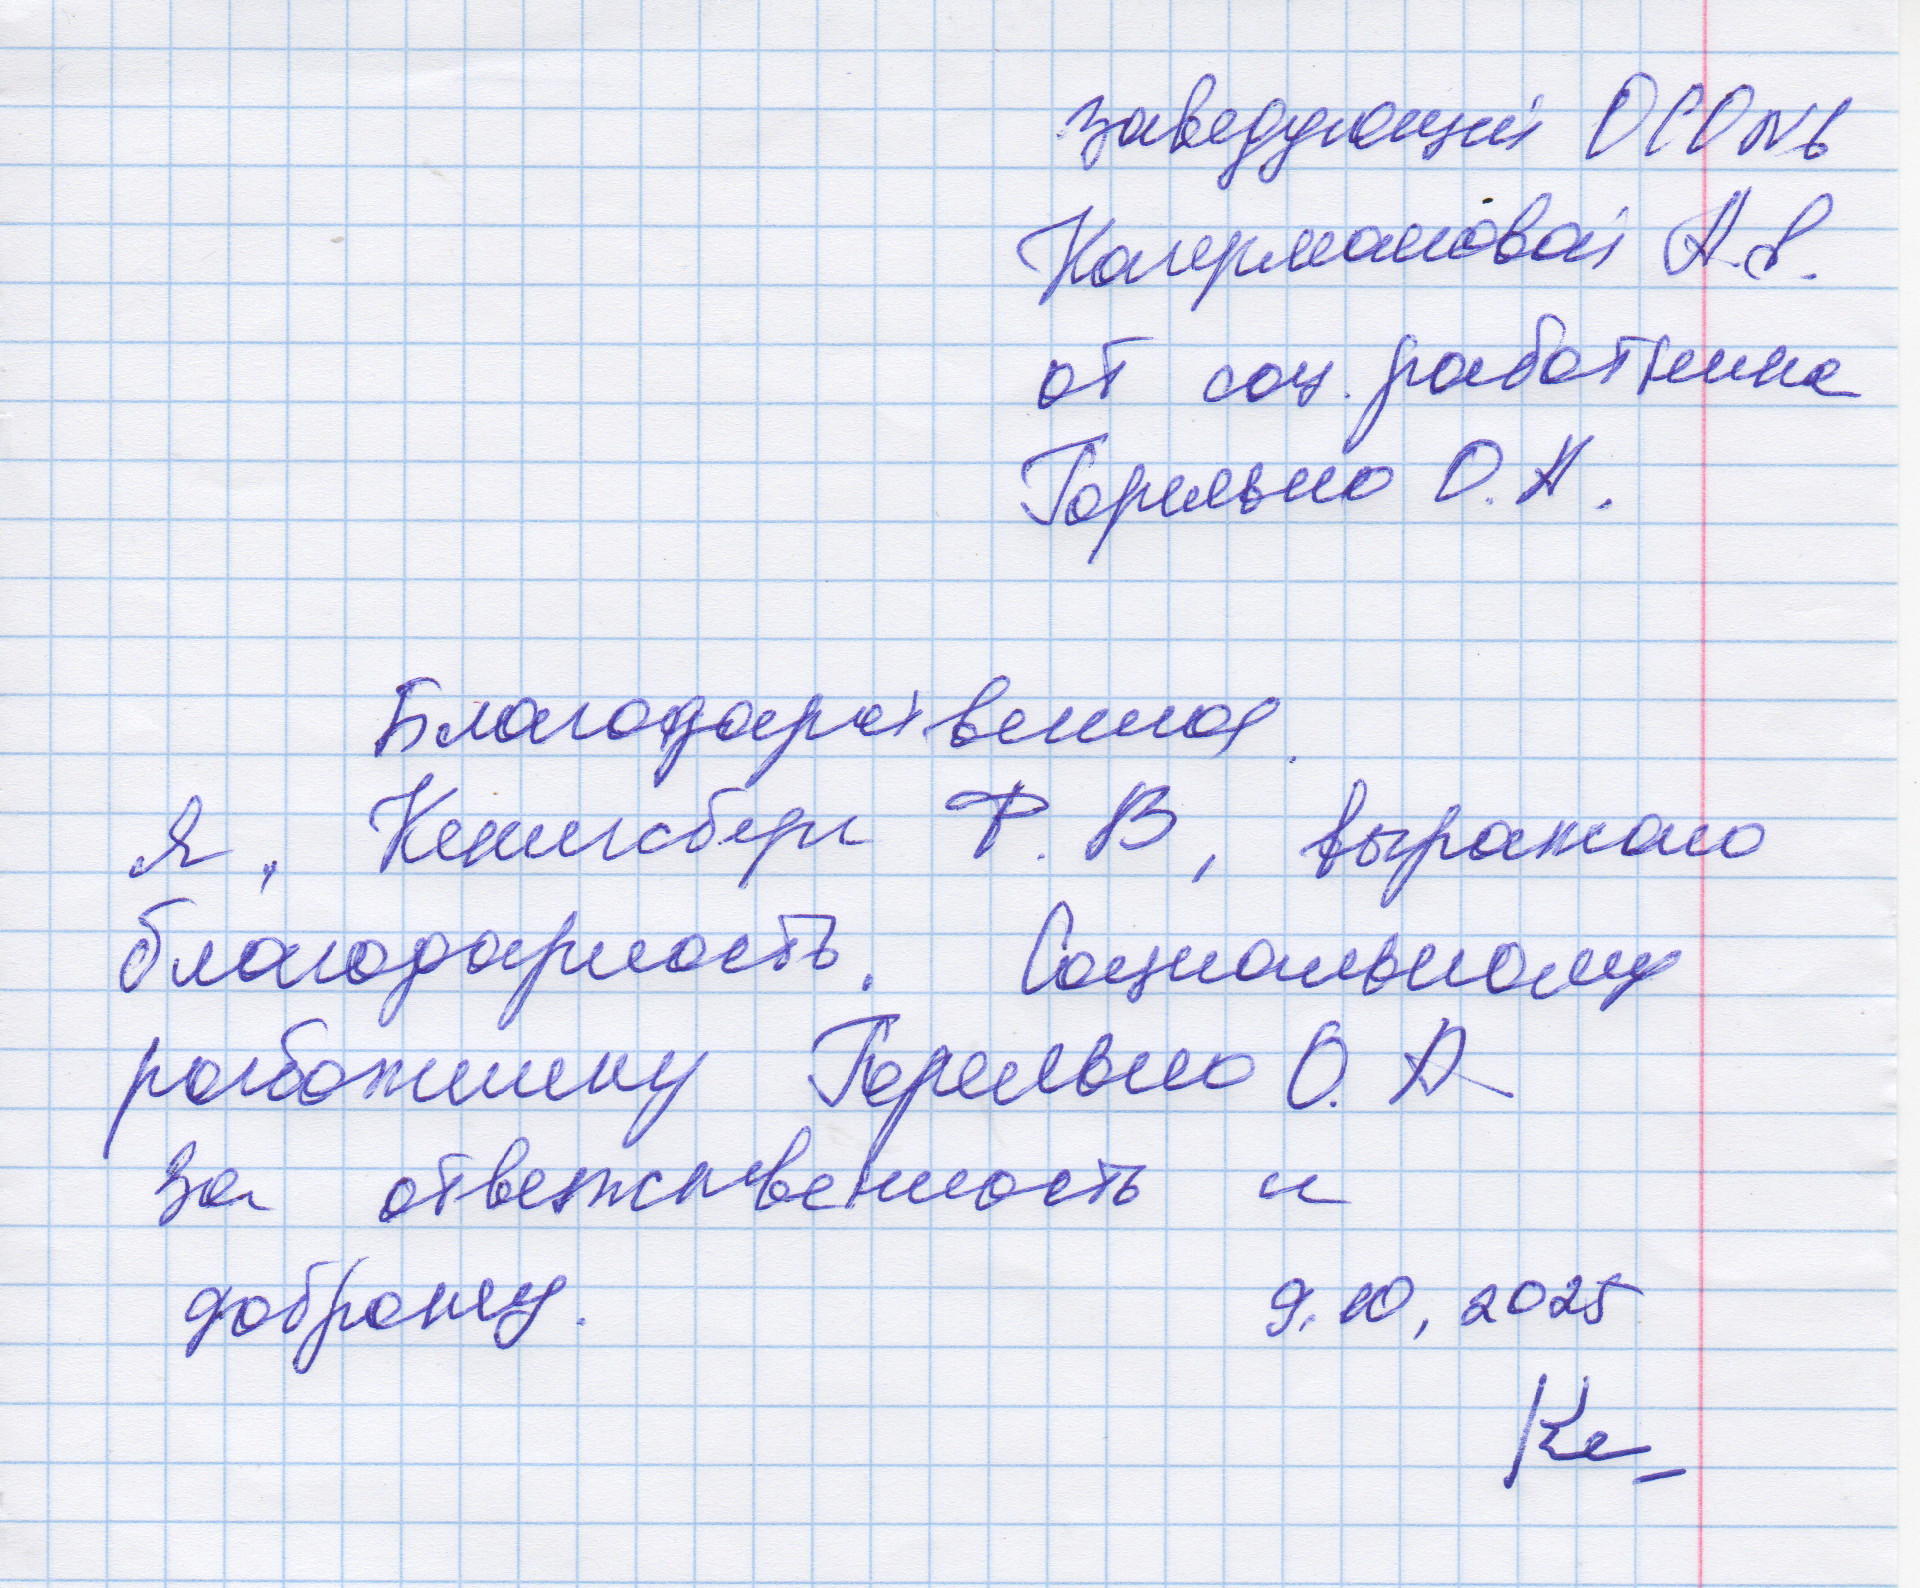 заведующий ОСО №6
Кагермановой А.В.
от соц. работника
Горельно О.А.
Благодарственная.
Я, Кенигсберг Р.В, выражаю
благодарность. Социальному
работнику Горельно О.А
за ответственность и
доброту.
9.10,2025